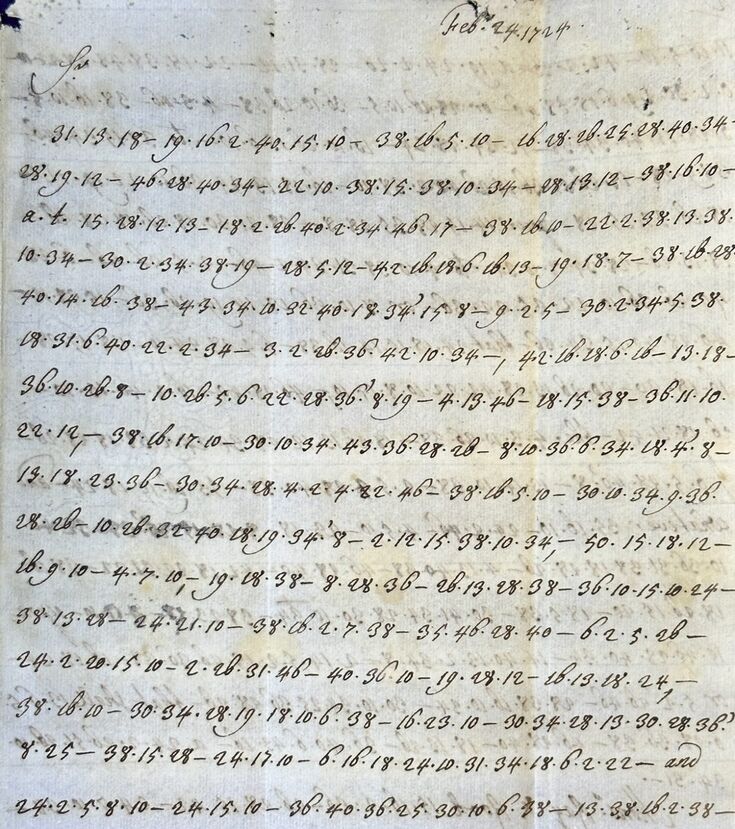 Feb: 24. 1724
Sr
31. 13. 18 – 19. 16. 2. 40. 15. 10 – 38. 16. 5. 10 – 16. 28. 26. 25. 28. 40. 34 –
28. 19. 12 – 46. 28. 40. 34 – 22. 10. 38. 15. 38. 10. 34 – 28. 13. 12 – 38. 16. 10 –
a. t. 15. 28. 12. 13 – 18. 2. 26. 40. 2. 34. 46. 17 – 38. 16. 10 – 22. 2. 38. 13. 38.
10. 34 – 30. 2. 34. 38. 19 – 28. 5. 12 – 42. 16. 18. 6. 16. 13 – 19. 18. 7 – 38. 16. 28.
40. 14. 16. 38 – 43. 34. 10. 32. 40. 18. 34' 15. 8 – 9. 2. 5 – 30. 2. 34. 5. 38.
18. 31. 6. 40. 22. 2. 34 – 3. 2. 26. 36. 42. 10. 34 –, 42. 16. 18. 6. 16 – 13. 18 –
36. 10. 26. 8 – 10. 26. 5. 6. 22. 28. 36' 8. 19 – 4. 13. 46 – 18. 15. 38 – 36. 11. 10.
22. 12, – 38. 16. 17. 10 – 30. 10. 34. 43. 36. 28. 26 – 8. 10. 36. 6. 34. 18. 4' 8 –
13. 18. 23. 36 – 30. 34. 28. 4. 2. 4. 22. 46 – 38. 16. 5. 10 – 30. 10. 34. 9. 36.
28. 26 – 10. 26. 32. 40. 18. 19. 34' 8 – 2. 12. 15. 38. 10. 34, – 50. 15. 18. 12 –
16. 9. 10 – 4. 7. 10, – 19. 18. 38 – 8. 28. 36 – 26. 13. 28. 38 – 36. 10. 15. 10. 24 –
38. 13. 28 – 24. 21. 10 – 38. 16. 2. 7. 38 – 35. 46. 28. 40 – 6. 2. 5. 26 –
24. 2. 20. 15. 10 – 2. 26. 31. 46 – 40. 36. 10 – 19. 28. 12 – 16. 13. 18. 24, –
38. 16. 10 – 30. 34. 28. 19. 18. 10. 6. 38 – 16. 23. 10 – 30. 34. 28. 13. 30. 28. 36'
8. 25 – 38. 15. 28 – 24. 17. 10 – 6. 16. 18. 24. 10. 31. 34. 18. 6. 2. 22 – and
24. 2. 5. 8. 10 – 24. 15. 10 – 36. 40. 36. 25. 30. 10. 6. 38 – 13. 38. 16. 2. 38 –